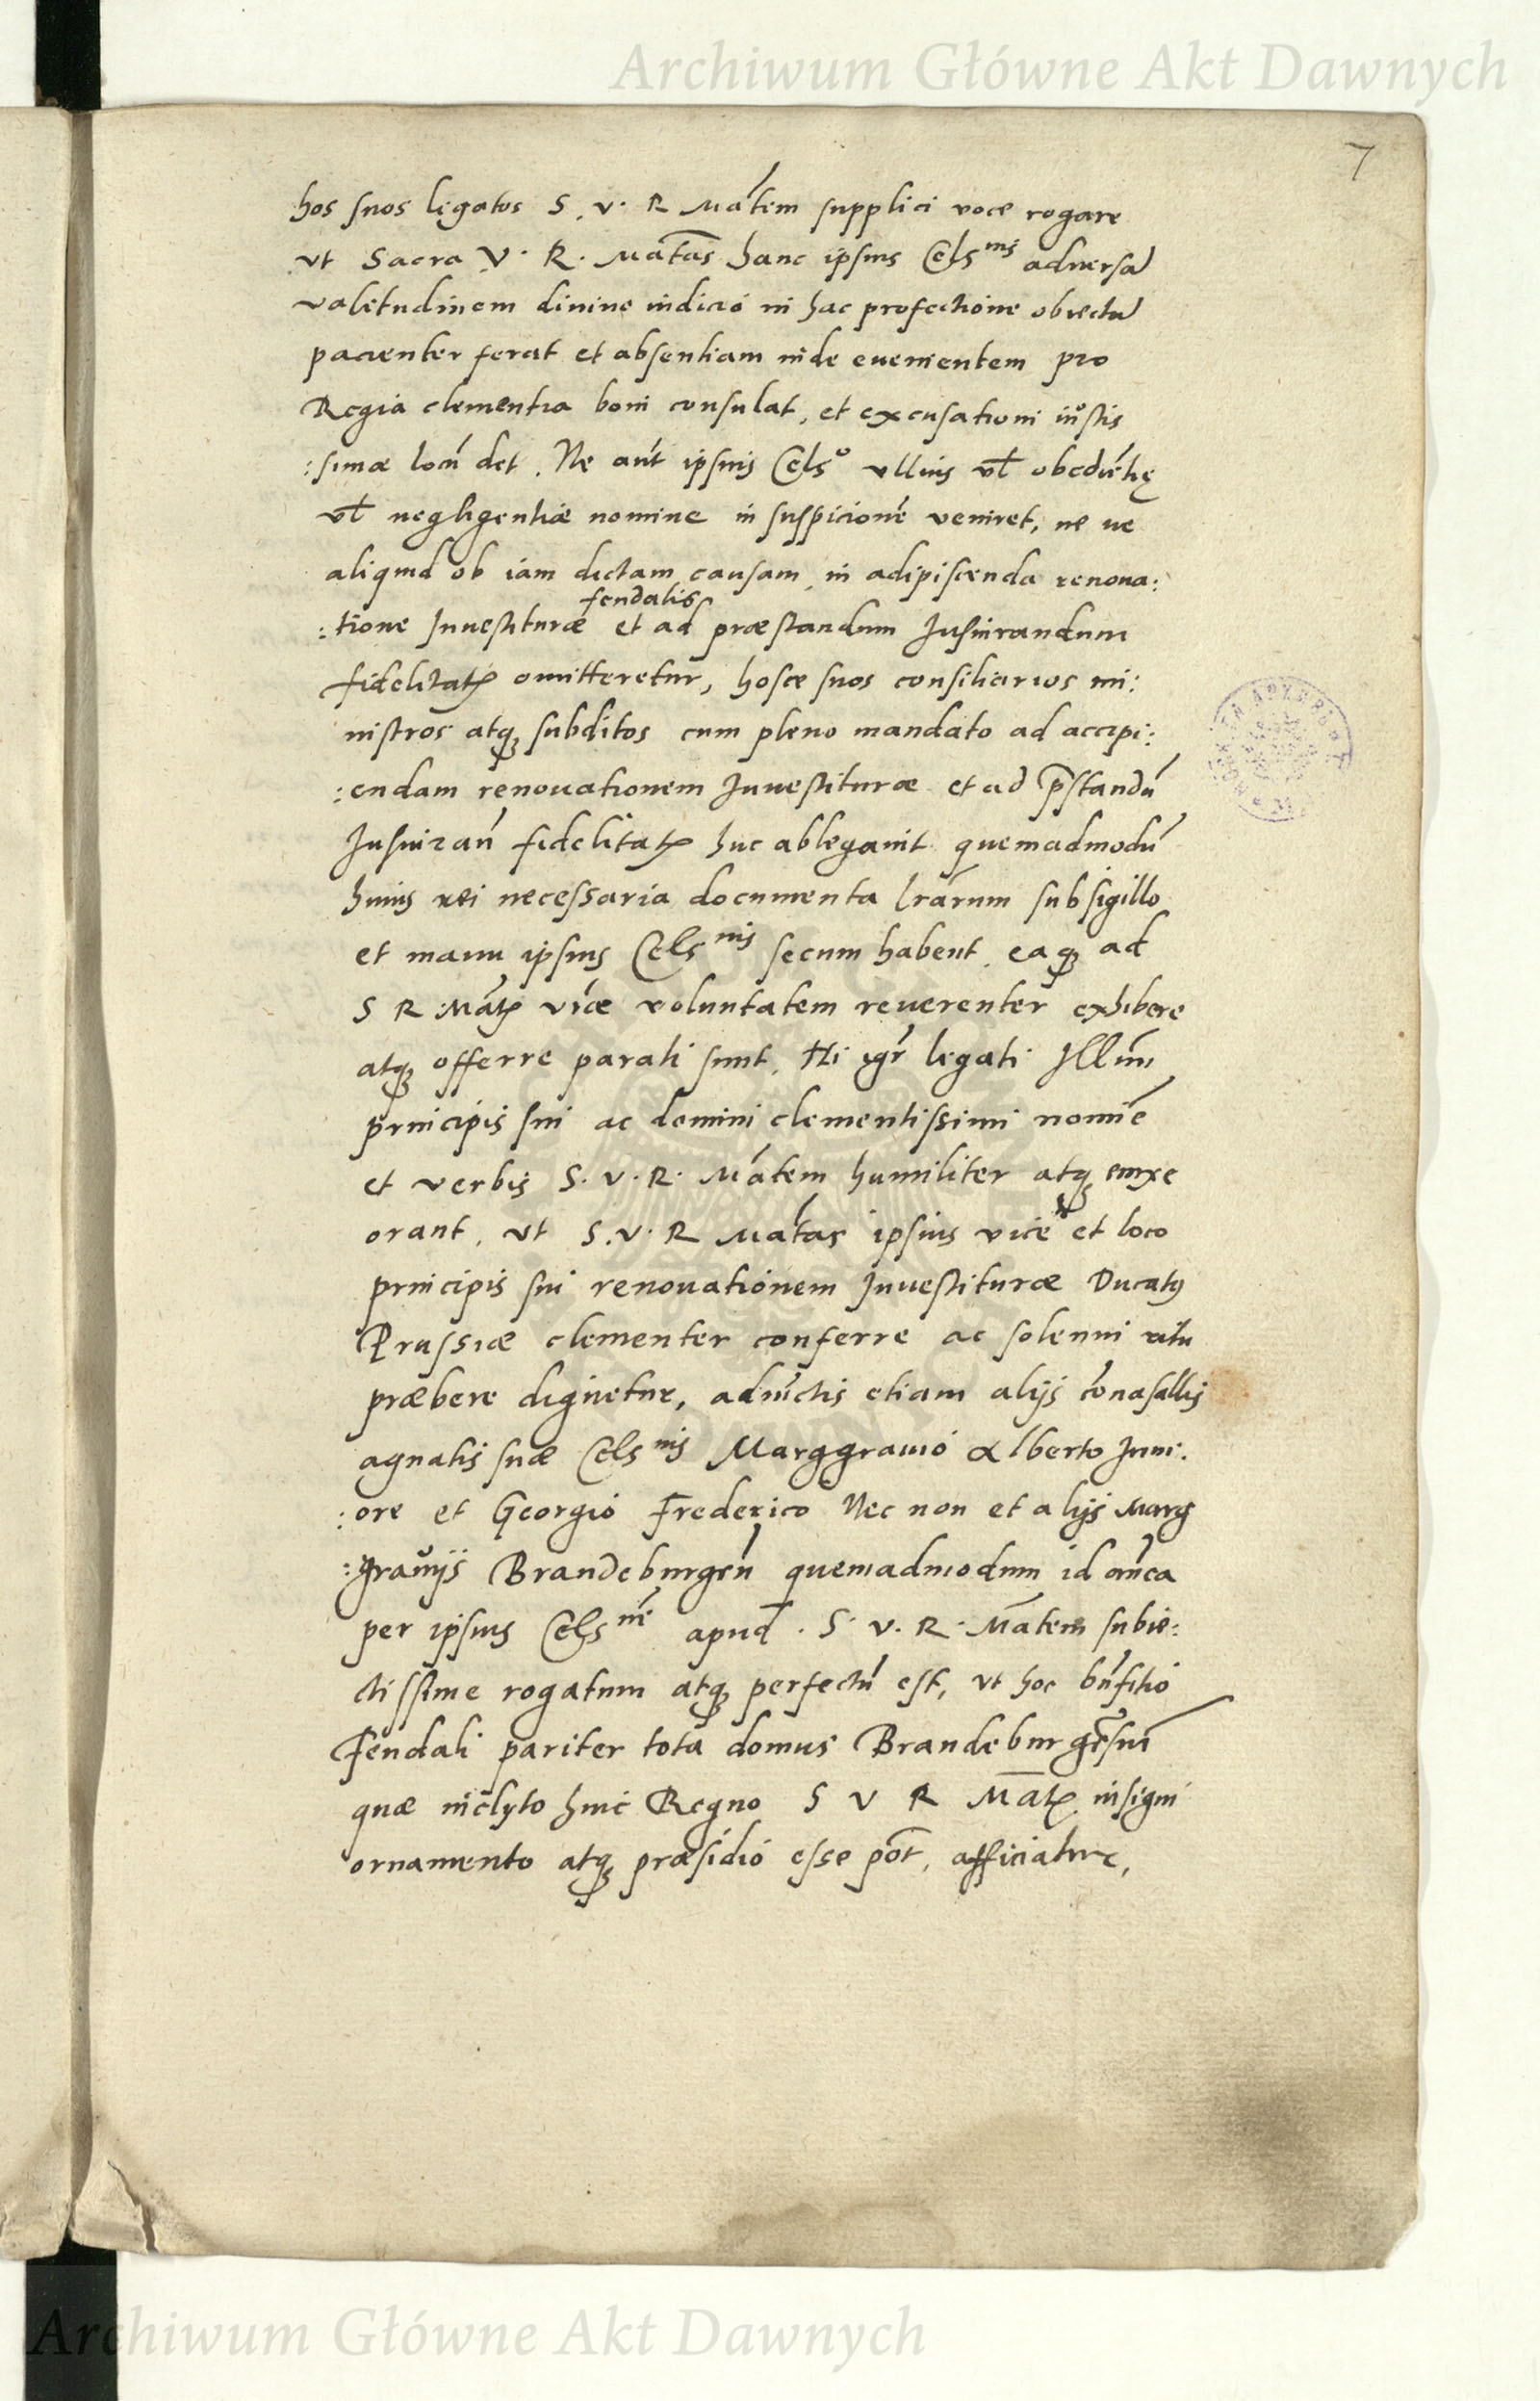 Archiwum Główne Akt Dawnych
7
hos suos legatos S. V. R Mátem supplici voce rogare
vt Sacra V. R. Matas hanc ipsius Cels^nis aduersā
valetudinem diuino iudicio in hac profectione obiectā
pacienter ferat et absentiam inde euenientem pro
Regia clementia boni consulat, et excusationi iustis
:simæ locū det. Ne aūt ipsius Cels^o vllius vl obediētię
vl negligentiæ nomine in suspicionē veniret, ne ue
aliquid ob iam dictam causam in adipiscenda renoua:
feudalis
:tione Inuestituræ et ad præstandum Iusiurandum
fidelitatꝭ omitteretur, hosce suos consiliarios mi:
nistros atqꝫ subditos cum pleno mandato ad accipi:
:endam renouationem Inuestituræ et ad p̄standū
Iusiuran̄ fidelitatꝭ huc ablegauit quemadmodū
huius rei necessaria documenta lr̄arum sub sigillo
et manu ipsius Cels^nis secum habent, eaqꝫ ad
S R Mātꝭ vr̄æ voluntatem reuerenter exhibere
atqꝫ offerre parati sunt. Hi igr̄ legati Illmi
principis sui ac domini clementissimi nomīe
et verbis S. V. R. Mátem humiliter atqꝫ enixe
orant, vt S. V. R Mátas ipsius vice et loco
principis sui renouationem Inuestituræ Ducatꝰ
Prussiæ clementer conferre ac solenni ritu
præbere dignetur, adiūctis etiam alijs cōuasallis
agnatis suæ Cels^nis Marggrauio Alberto Iuni:
:ore et Georgio Frederico Nec non et alijs Marg
:grauijs Brandeburgen̄ quemadmodum id an̄ea
per ipsius Cels^nē apud S. V. R. Mātem subie:
ctissime rogatum atqꝫ perfectū est, vt hoc bn̄fitio
Feudali pariter tota domus Brandeburgēsiū
quæ inclyto huic Regno S V R Mātꝭ insigni
ornamento atqꝫ præsidio esse pōt, afficiatur,
Archiwum Główne Akt Dawnych